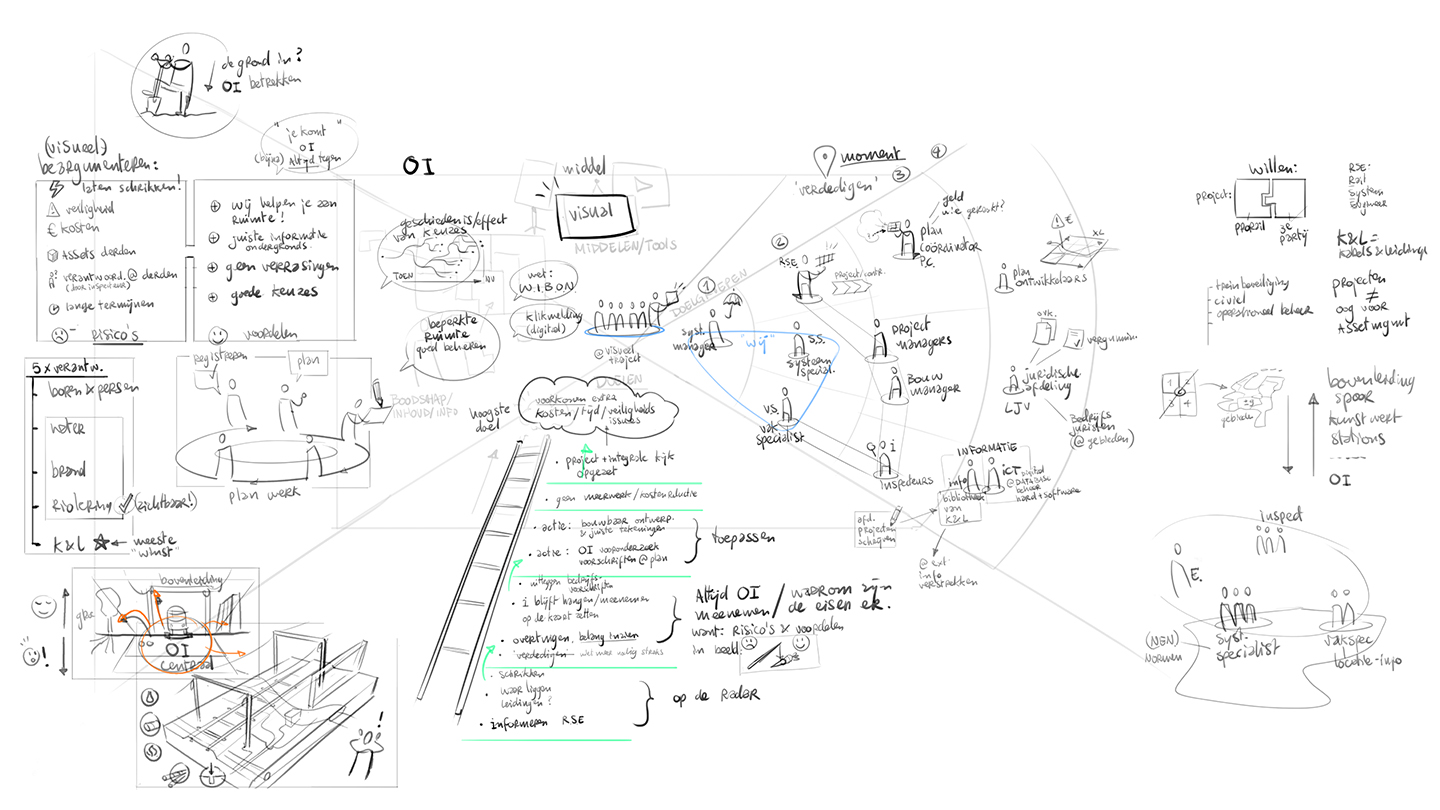 de grond in?
OI betrekken
"je komt"
OI
(bijna) Altijd tegen
(visueel)
beargumenteren:
laten schrikken!
veiligheid
€ kosten
Assets derden
verantwoord. @ derden
lange termijnen
Risico's
wij helpen je aan
Ruimte!
juiste informatie
ondergronds.
geen verrassingen
goede keuzes
voordelen
5 x verantw.
boren & persen
water
brand
Riolering (zichtbaar!)
K&L ← meeste
"winst"
registreren
plan
plan werk
BOODSCHAP/
INHOUD/INFO
bovenleiding
OI
centraal
!
!
OI
middel
visual
MIDDELEN/TOOLS
geschiedenis/effect
van keuzes
TOEN
NU
wet:
W.I.B.O.N.
klikmelding
(digitaal)
beperkte
Ruimte
goed beheren
@ visueel
traject
DOELGROEPEN
DOELEN
hoogste
doel
voorkomen extra
kosten/tijd/veiligheids
issues
• project + integrale kijk
opgezet
• geen meerwerk/kostenreductie
• actie: bouwbaar ontwerp.
& juiste tekeningen
• actie: OI vooronderzoek
voorschriften @ plan
toepassen
• uitleggen bedrijfs-
voorschriften
• i blijft hangen/meenemen
op de kaart zetten
• overtuigen, belang inzien
• 'verdedigen' niet meer nodig straks
Altijd OI / waarom zijn
meenemen / de eisen er.
want: Risico's & voordelen
in beeld:
• schrikken
• waar liggen
leidingen?
• informeren RSE
op de Radar
moment
'verdedigen'
1
2
3
4
syst.
manager
"wij"
S.S.
systeem
special.
V.S.
vak
specialist
RSE
Project/contr.
geld
plan
coördinator
P.C.
project
managers
Bouw
manager
Q i
Inspecteurs
€
XL
plan
ontwikkelaars
ovk.
vergunnin.
juridische
afdeling
LJV
Bedrijfs
juristen
(@ gebieden)
INFORMATIE
info
ICT Digital
@ DATABase
beheer
hard + software
bibliotheek
van
K&L
afd.
projecten
schrijven
@ ext.
info
verstrekken
willen:
project:
prorail
3e
partij
RSE:
Rail
System
Engineer
K&L =
kabels & leidingen
- treinbeveiliging
- civiel
- operationeel beheer
projecten
≠
oog voor
Assetmgmt
1
2
3
4
gebieden
bovenleiding
spoor
kunstwerk
stations
OI
inspect
E.
(NEN)
Normen
syst.
specialist
vakspec
locatie-info